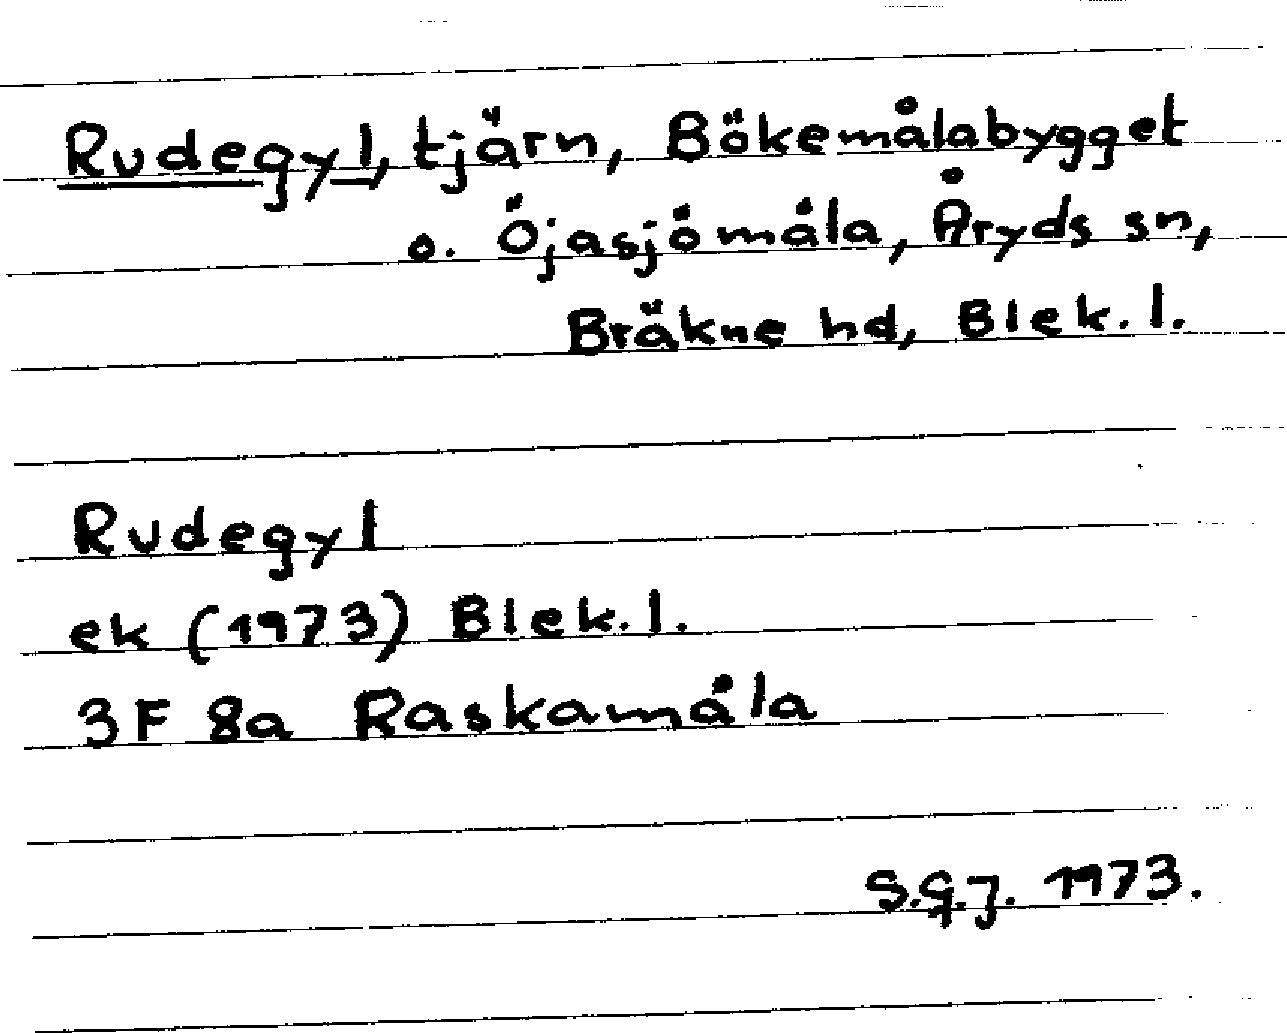 Rudegyl, tjärn, Bökemålabygget
o. Öjasjömåla, Åryds sn,
Bräkne hd, Blek. l.
Rudegyl
ek (1973) Blek. l.
3F 8a Raskamåla
S.G.J. 1973.